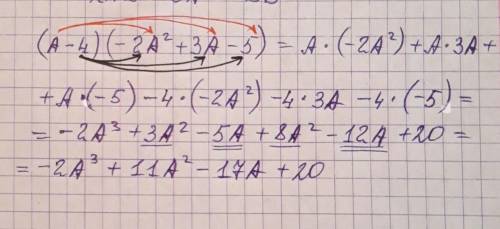 (A-4)(-2A²+3A-5) = A·(-2A²)+A·3A+
+A·(-5)-4·(-2A²)-4·3A-4·(-5)=
= -2A³+3A²-5A+8A²-12A+20=
= -2A³+11A²-17A+20